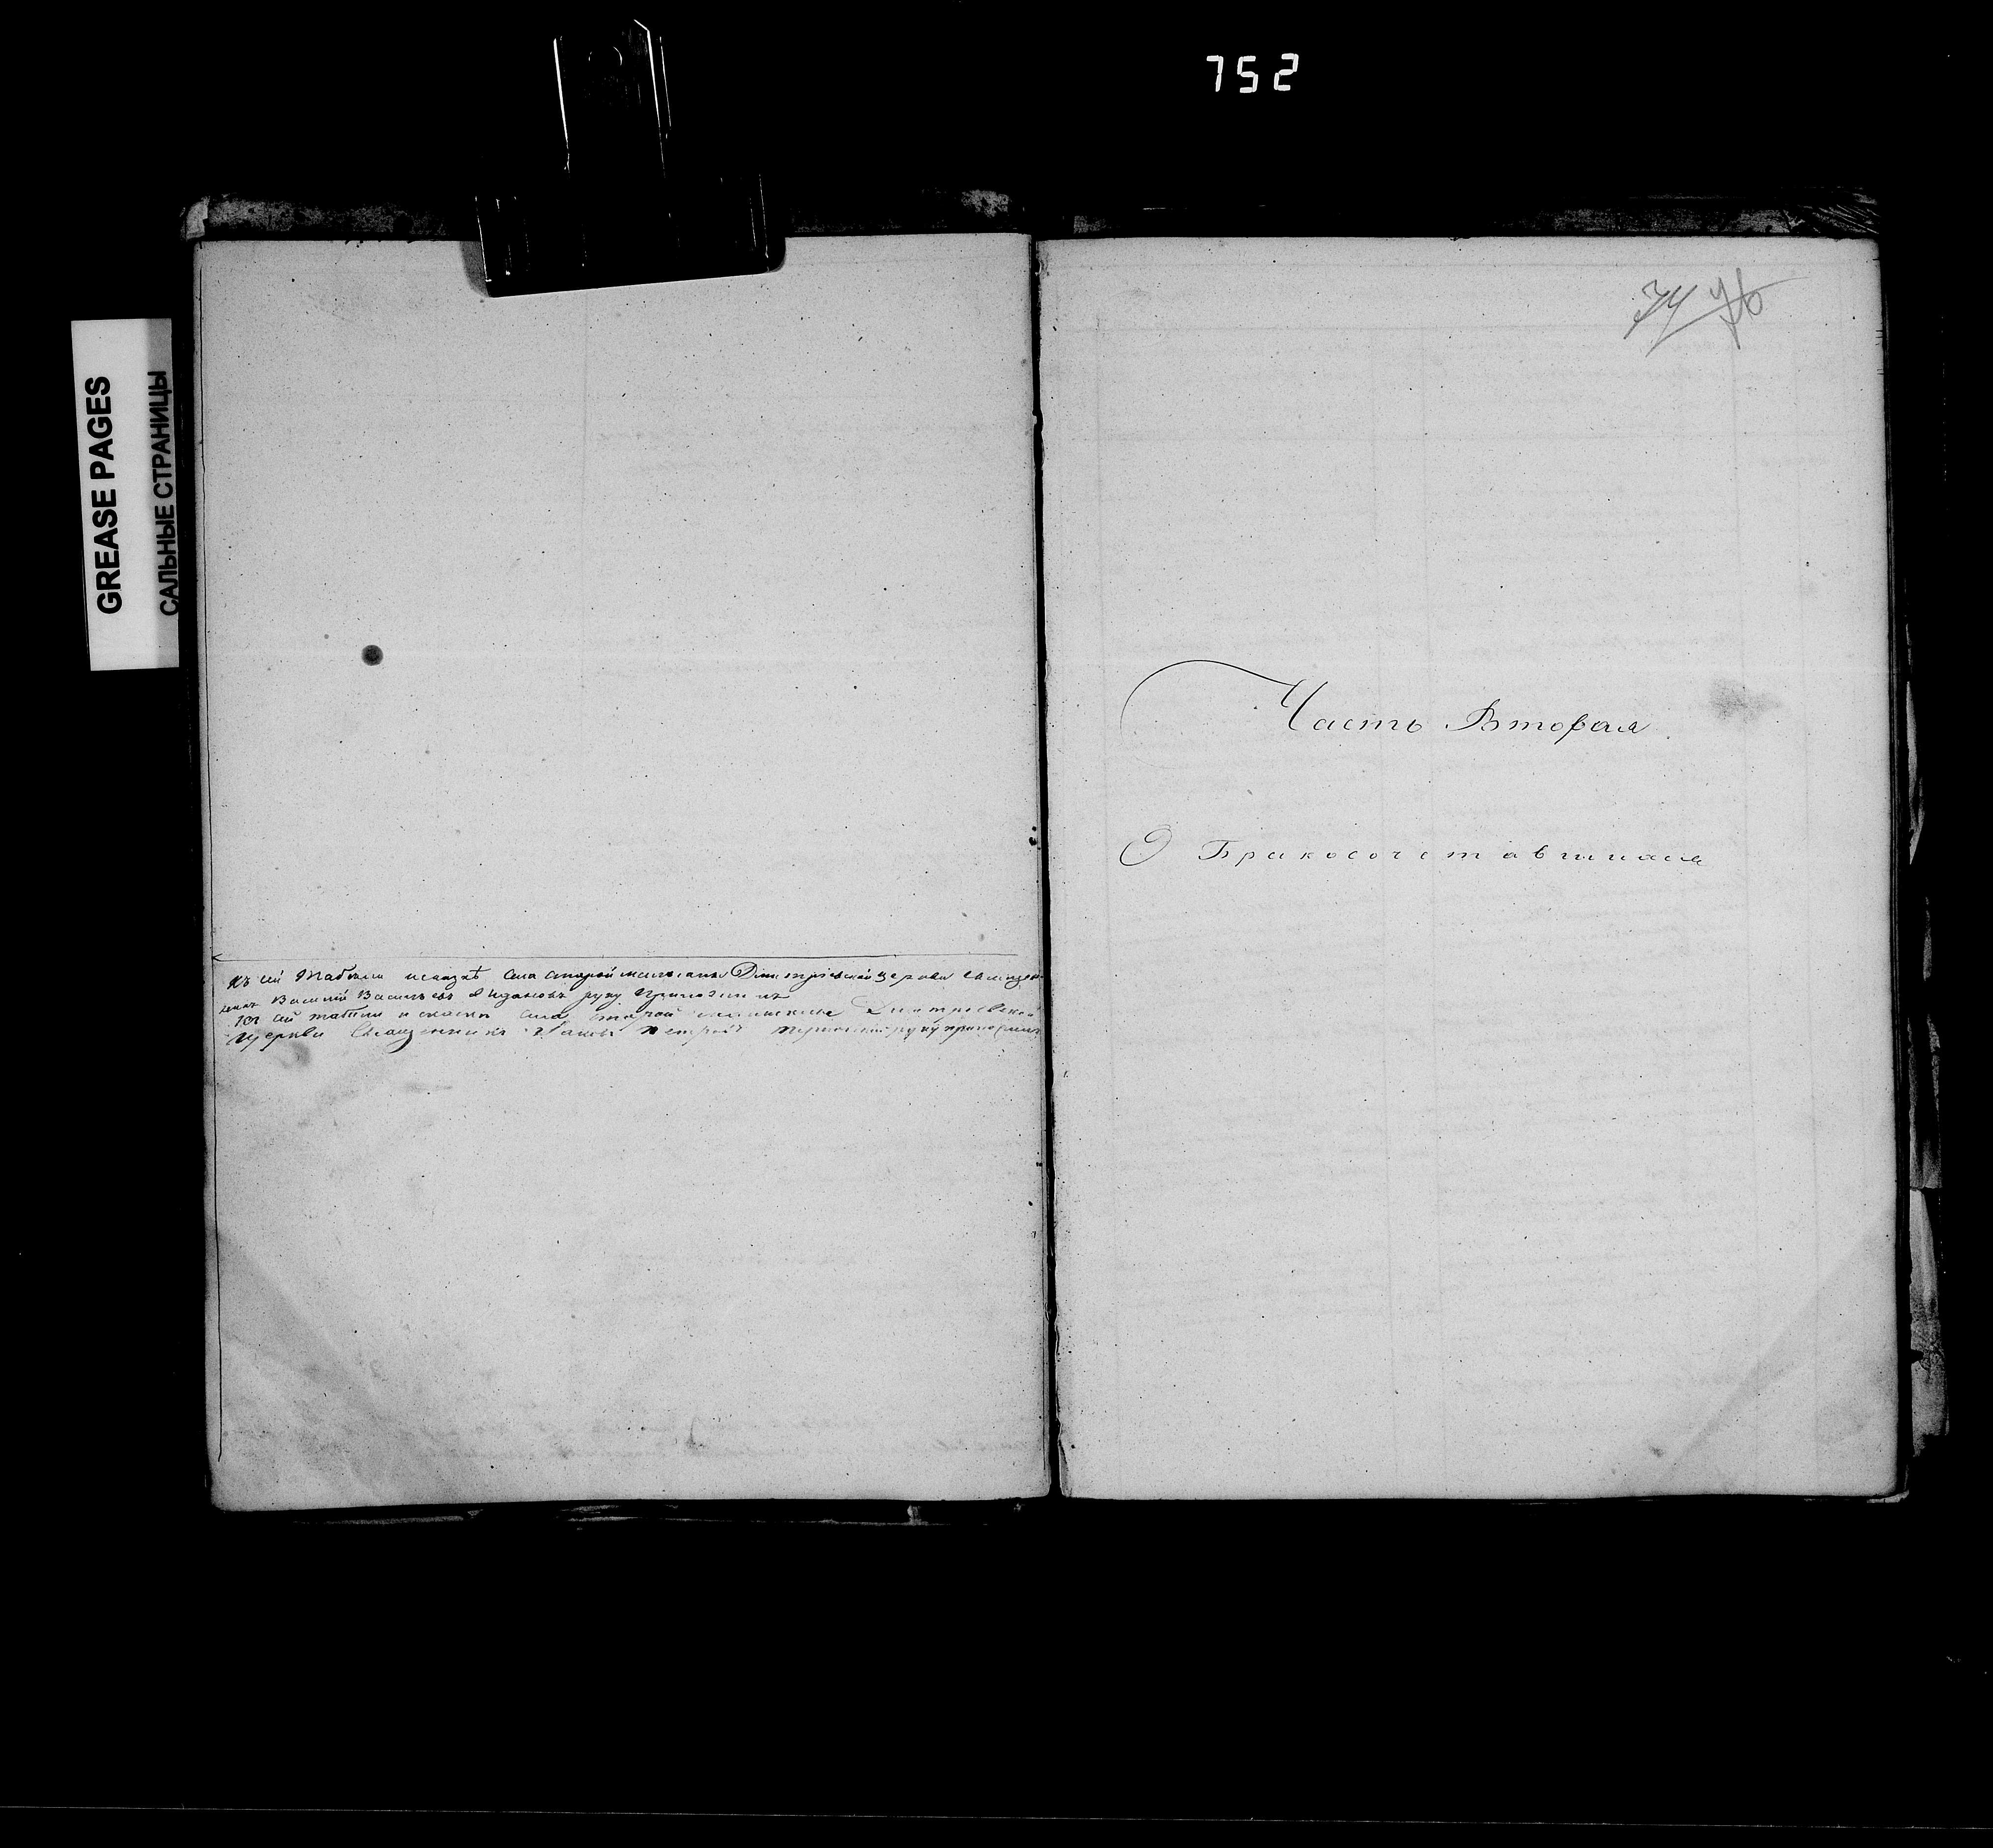 752
GREASE PAGES
САЛЬНЫЕ СТРАНИЦЫ
Къ сей Табели и сказкѣ села Старой Дмитріевской церкви Священ-
никъ Василій Васильевъ руку приложилъ
Къ сей табели и сказки села Старой Дмитріевской
церкви Священникъ Петровъ руку приложилъ
74 76
Часть Вторая
О Бракосочетавшихся